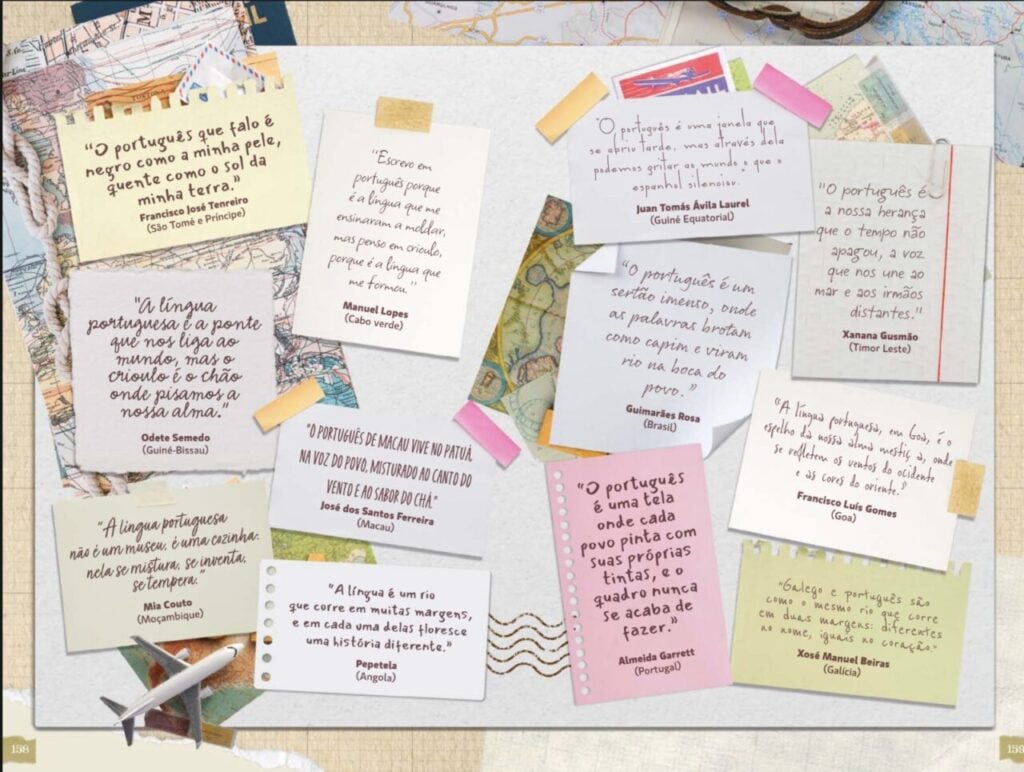 "O português que falo é
negro como a minha pele,
quente como o sol da
minha terra."
Francisco José Tenreiro
(São Tomé e Príncipe)
"Escrevo em
português porque
é a língua que me
ensinaram a moldar,
mas penso em crioulo,
porque é a língua que
me formou."
Manuel Lopes
(Cabo verde)
"A língua
portuguesa é a ponte
que nos liga ao
mundo, mas o
crioulo é o chão
onde pisamos a
nossa alma."
Odete Semedo
(Guiné-Bissau)
"O PORTUGUÊS DE MACAU VIVE NO PATUÁ,
NA VOZ DO POVO, MISTURADO AO CANTO DO
VENTO E AO SABOR DO CHÁ."
José dos Santos Ferreira
(Macau)
"A língua portuguesa
não é um museu, é uma cozinha:
nela se mistura, se inventa,
se tempera."
Mia Couto
(Moçambique)
"A língua é um rio
que corre em muitas margens,
e em cada uma delas floresce
uma história diferente."
Pepetela
(Angola)
158
"O português é uma janela que
se abriu tarde, mas através dela
podemos gritar ao mundo o que o
espanhol silenciou."
Juan Tomás Ávila Laurel
(Guiné Equatorial)
"O português é
a nossa herança
que o tempo não
apagou, a voz
que nos une ao
mar e aos irmãos
distantes."
Xanana Gusmão
(Timor Leste)
"O português é um
sertão imento, onde
as palavras brotam
como capim e viram
rio na boca do
povo."
Guimarães Rosa
(Brasil)
"A língua portuguesa, em Goa, é o
espelho da nossa alma mestiç a, onde
se refletem os ventos do ocidente
e as cores do oriente."
Francisco Luís Gomes
(Goa)
"O português
é uma tela
onde cada
povo pinta com
suas próprias
tintas, e o
quadro nunca
se acaba de
fazer."
Almeida Garrett
(Portugal)
"Galego e português são
como o mesmo rio que corre
em duas margens: diferentes
no nome, iguais no coração."
Xosé Manuel Beiras
(Galícia)
159